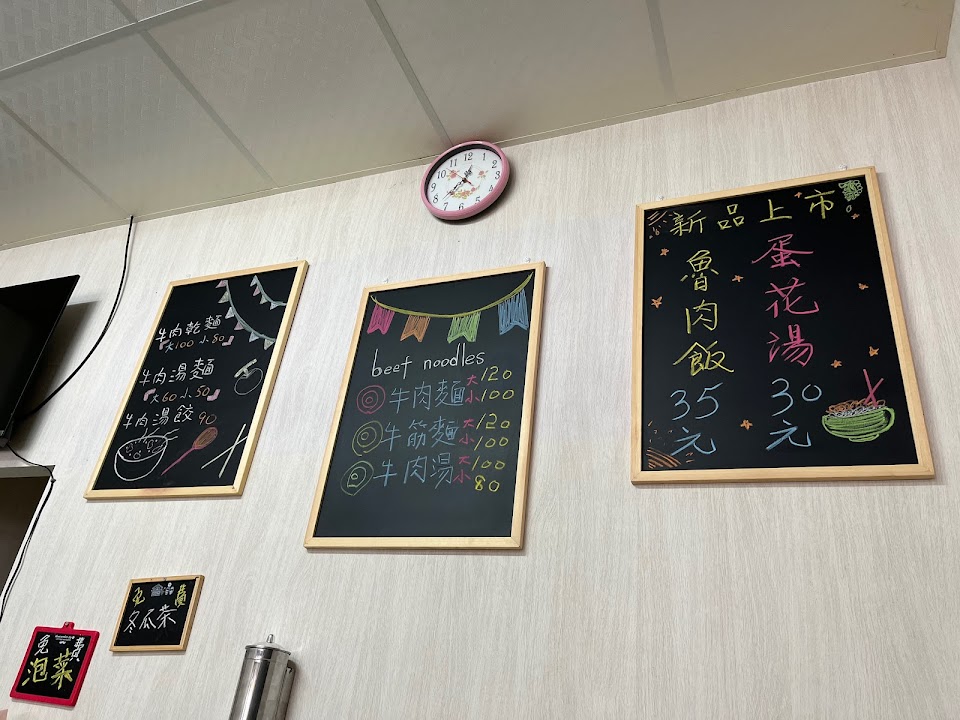 牛肉乾麵
大100 小80
牛肉湯麵
大60 小50
牛肉湯餃 90
beef noodles
牛肉麵 大120
小100
牛筋麵 大120
小100
牛肉湯 大100
小80
新品上市
蛋花湯 30元
魯肉飯 35元
免費
冬瓜茶
免費
泡菜
12 1 2 3 6 7 8 10 11